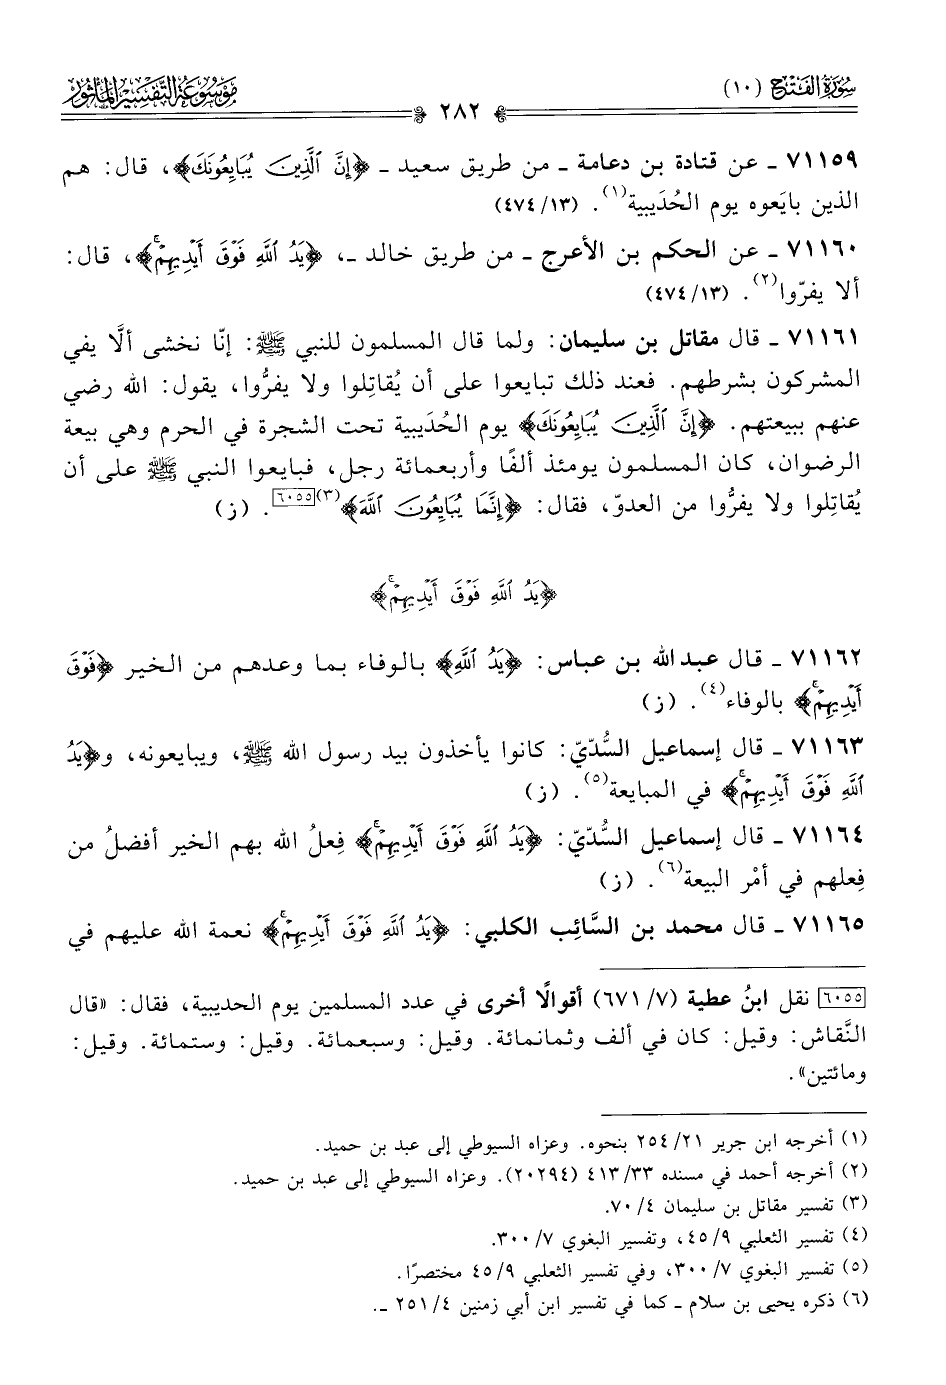 سُورَةُ الفَتْحِ (١٠)
٢٨٢
مَوْسُوعَةُ التَّفْسِيرِ المَأْثُور
٧١١٥٩ ـ عن قتادة بن دعامة ـ من طريق سعيد ـ ﴿إِنَّ ٱلَّذِينَ يُبَايِعُونَكَ﴾، قال: هم
الذين بايَعوه يوم الحُدَيبية(١). (١٣/ ٤٧٤)
٧١١٦٠ ـ عن الحكم بن الأعرج ـ من طريق خالد ـ، ﴿يَدُ ٱللَّهِ فَوْقَ أَيْدِيهِمْۚ﴾، قال:
ألا يفرّوا(٢). (١٣/ ٤٧٤)
٧١١٦١ ـ قال مقاتل بن سليمان: ولما قال المسلمون للنبي ﷺ: إنّا نخشى ألَّا يفي
المشركون بشرطهم. فعند ذلك تبايعوا على أن يُقاتِلوا ولا يفرُّوا، يقول: الله رضي
عنهم ببيعتهم. ﴿إِنَّ ٱلَّذِينَ يُبَايِعُونَكَ﴾ يوم الحُدَيبية تحت الشجرة في الحرم وهي بيعة
الرضوان، كان المسلمون يومئذ ألفًا وأربعمائة رجل، فبايعوا النبي ﷺ على أن
يُقاتِلوا ولا يفرُّوا من العدوّ، فقال: ﴿إِنَّمَا يُبَايِعُونَ ٱللَّهَ﴾(٣)[٦٠٥٥]. (ز)
﴿يَدُ ٱللَّهِ فَوْقَ أَيْدِيهِمْۚ﴾
٧١١٦٢ ـ قال عبد الله بن عباس: ﴿يَدُ ٱللَّهِ﴾ بالوفاء بما وعدهم من الخير ﴿فَوْقَ
أَيْدِيهِمْۚ﴾ بالوفاء(٤). (ز)
٧١١٦٣ ـ قال إسماعيل السُّدّيّ: كانوا يأخذون بيد رسول الله ﷺ، ويبايعونه، و﴿يَدُ
ٱللَّهِ فَوْقَ أَيْدِيهِمْۚ﴾ في المبايعة(٥). (ز)
٧١١٦٤ ـ قال إسماعيل السُّدّيّ: ﴿يَدُ ٱللَّهِ فَوْقَ أَيْدِيهِمْۚ﴾ فِعلُ الله بهم الخير أفضلُ من
فِعلهم في أمْر البيعة(٦). (ز)
٧١١٦٥ ـ قال محمد بن السَّائِب الكلبي: ﴿يَدُ ٱللَّهِ فَوْقَ أَيْدِيهِمْۚ﴾ نعمة الله عليهم في
[٦٠٥٥] نقل ابنُ عطية (٧/ ٦٧١) أقوالًا أخرى في عدد المسلمين يوم الحديبية، فقال: «قال
النَّقاش: وقيل: كان في ألف وثمانمائة. وقيل: وسبعمائة. وقيل: وستمائة. وقيل:
ومائتين».
(١) أخرجه ابن جرير ٢١/ ٢٥٤ بنحوه. وعزاه السيوطي إلى عبد بن حميد.
(٢) أخرجه أحمد في مسنده ٣٣/ ٤١٣ (٢٠٢٩٤). وعزاه السيوطي إلى عبد بن حميد.
(٣) تفسير مقاتل بن سليمان ٤/ ٧٠.
(٤) تفسير الثعلبي ٩/ ٤٥، وتفسير البغوي ٧/ ٣٠٠.
(٥) تفسير البغوي ٧/ ٣٠٠، وفي تفسير الثعلبي ٩/ ٤٥ مختصرًا.
(٦) ذكره يحيى بن سلام ـ كما في تفسير ابن أبي زمنين ٤/ ٢٥١ ـ.